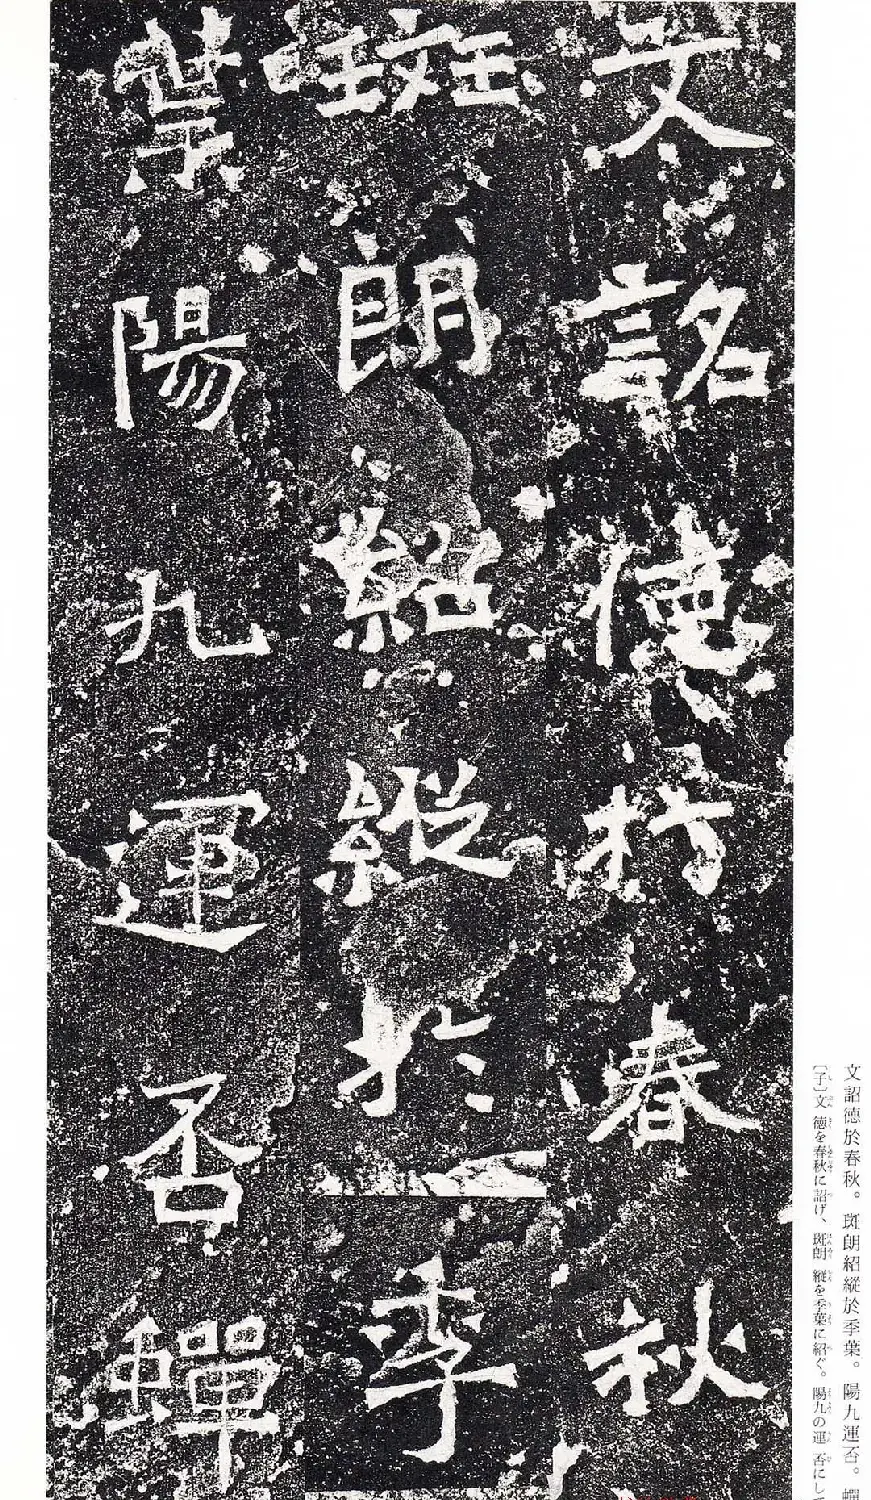 文詔徳於春秋。斑朗紹縱於季葉。陽九運否。
〔子〕文 徳を春秋に詔げ、斑朗 縱を季葉に紹ぐ。陽九の運 否にし
文詺德於春秋
斑朗紹縱於季
葉陽九運否蟬